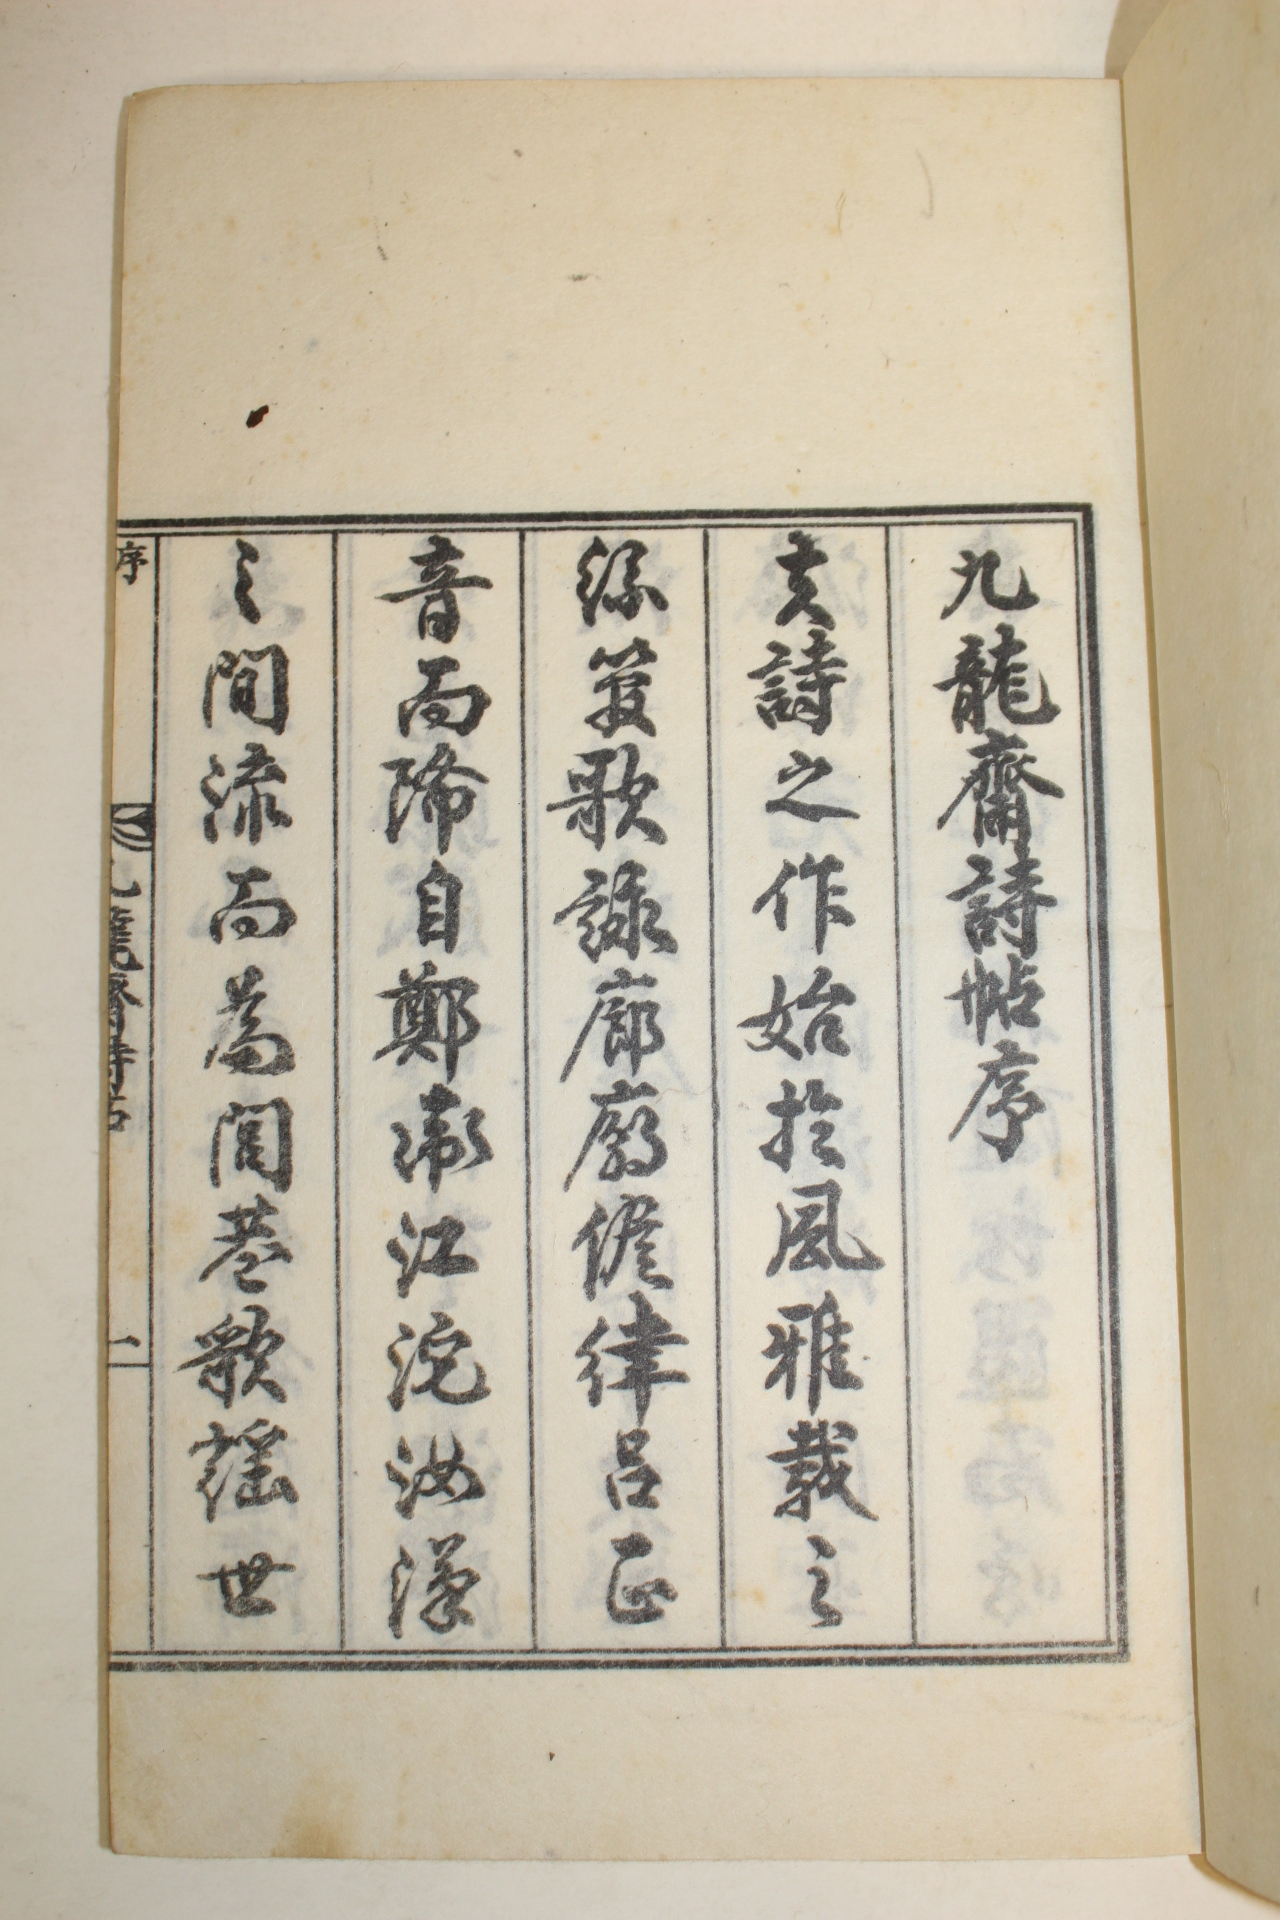 九龍齋詩帖序
夫詩之作始於風雅載之
絲簧歌詠廊廟儋律呂正
音而降自鄭衛江沱汝漢
之間流而為閭巷歌謠世
序
一